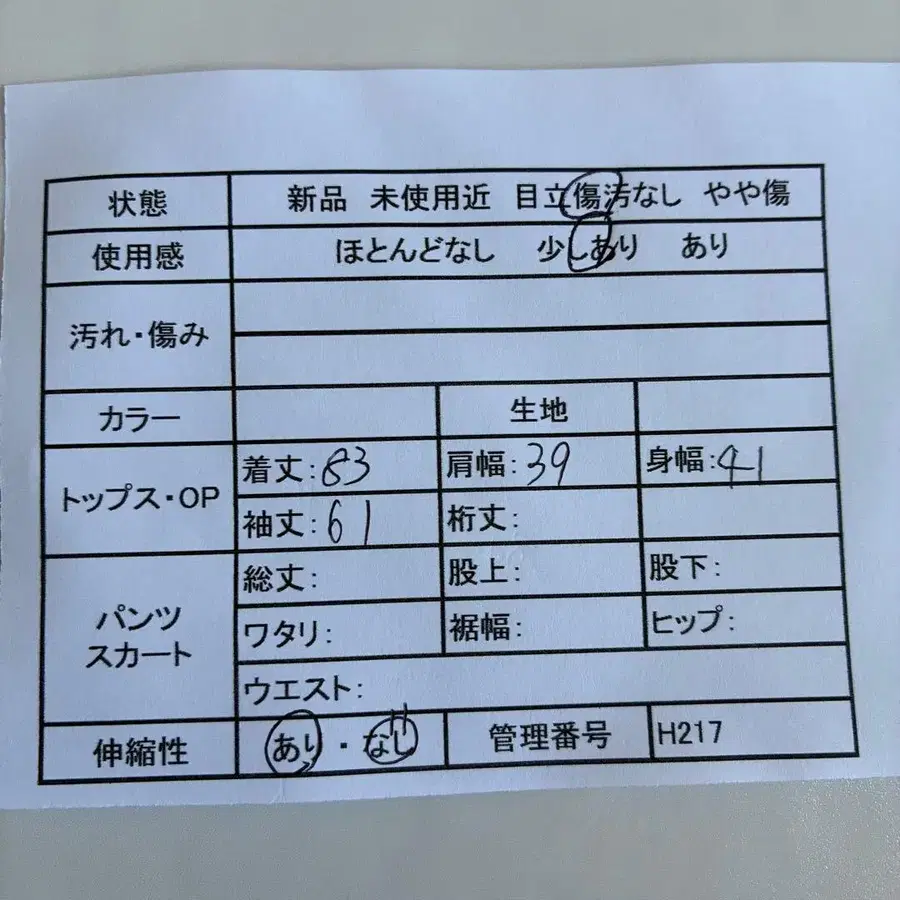 状態 新品 未使用近 目立傷汚なし やや傷
使用感 ほとんどなし 少しあり あり
汚れ・傷み
カラー 生地
トップス・OP
着丈:83 肩幅:39 身幅:41
袖丈:61 裄丈:
パンツ
スカート
総丈: 股上: 股下:
ワタリ: 裾幅: ヒップ:
ウエスト:
伸縮性 あり・なし 管理番号 H217